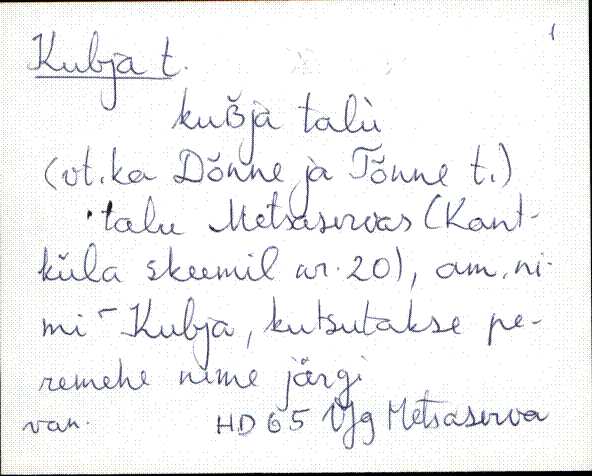 1
Kubja t.
kuBja talù
(vt. ka Dõnne ja Tõnne t.)
talu Metsaservas (Kant-
küla skeemil nr. 20), am. ni-
mi - Kubja, kutsutakse pe-
remehe nime järgi
van. HD 65 VJg Metsaserva